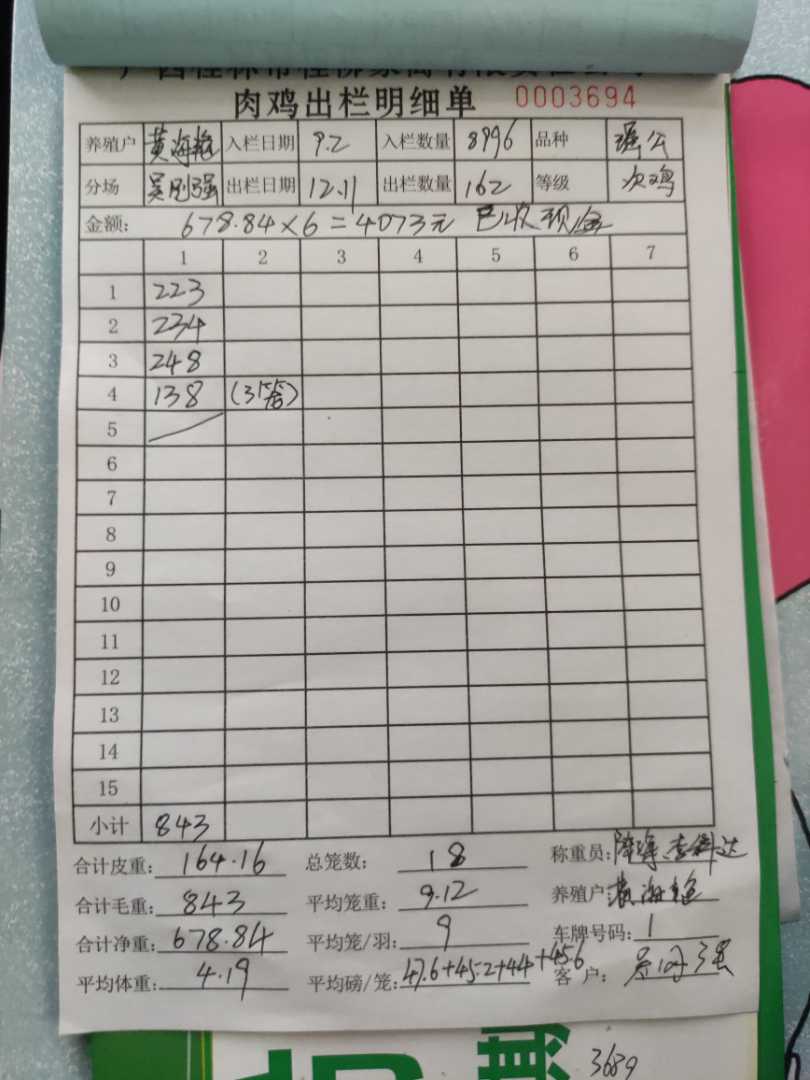 肉鸡出栏明细单 0003694
养殖户 黄海艳 入栏日期 9.2 入栏数量 8996 品种 瑶公
分场 吴刚强 出栏日期 12.11 出栏数量 162 等级 次鸡
金额: 678.84×6=4073元 已收现金
1 2 3 4 5 6 7
1 223
2 234
3 248
4 138 (3笼)
5
6
7
8
9
10
11
12
13
14
15
小计 843
合计皮重: 164.16 总笼数: 18 称重员:
合计毛重: 843 平均笼重: 9.12 养殖户: 黄海艳
合计净重: 678.84 平均笼/羽: 9 车牌号码: 1
平均体重: 4.19 平均磅/笼: 47.6+45.2+44+45.6 客户:
3689